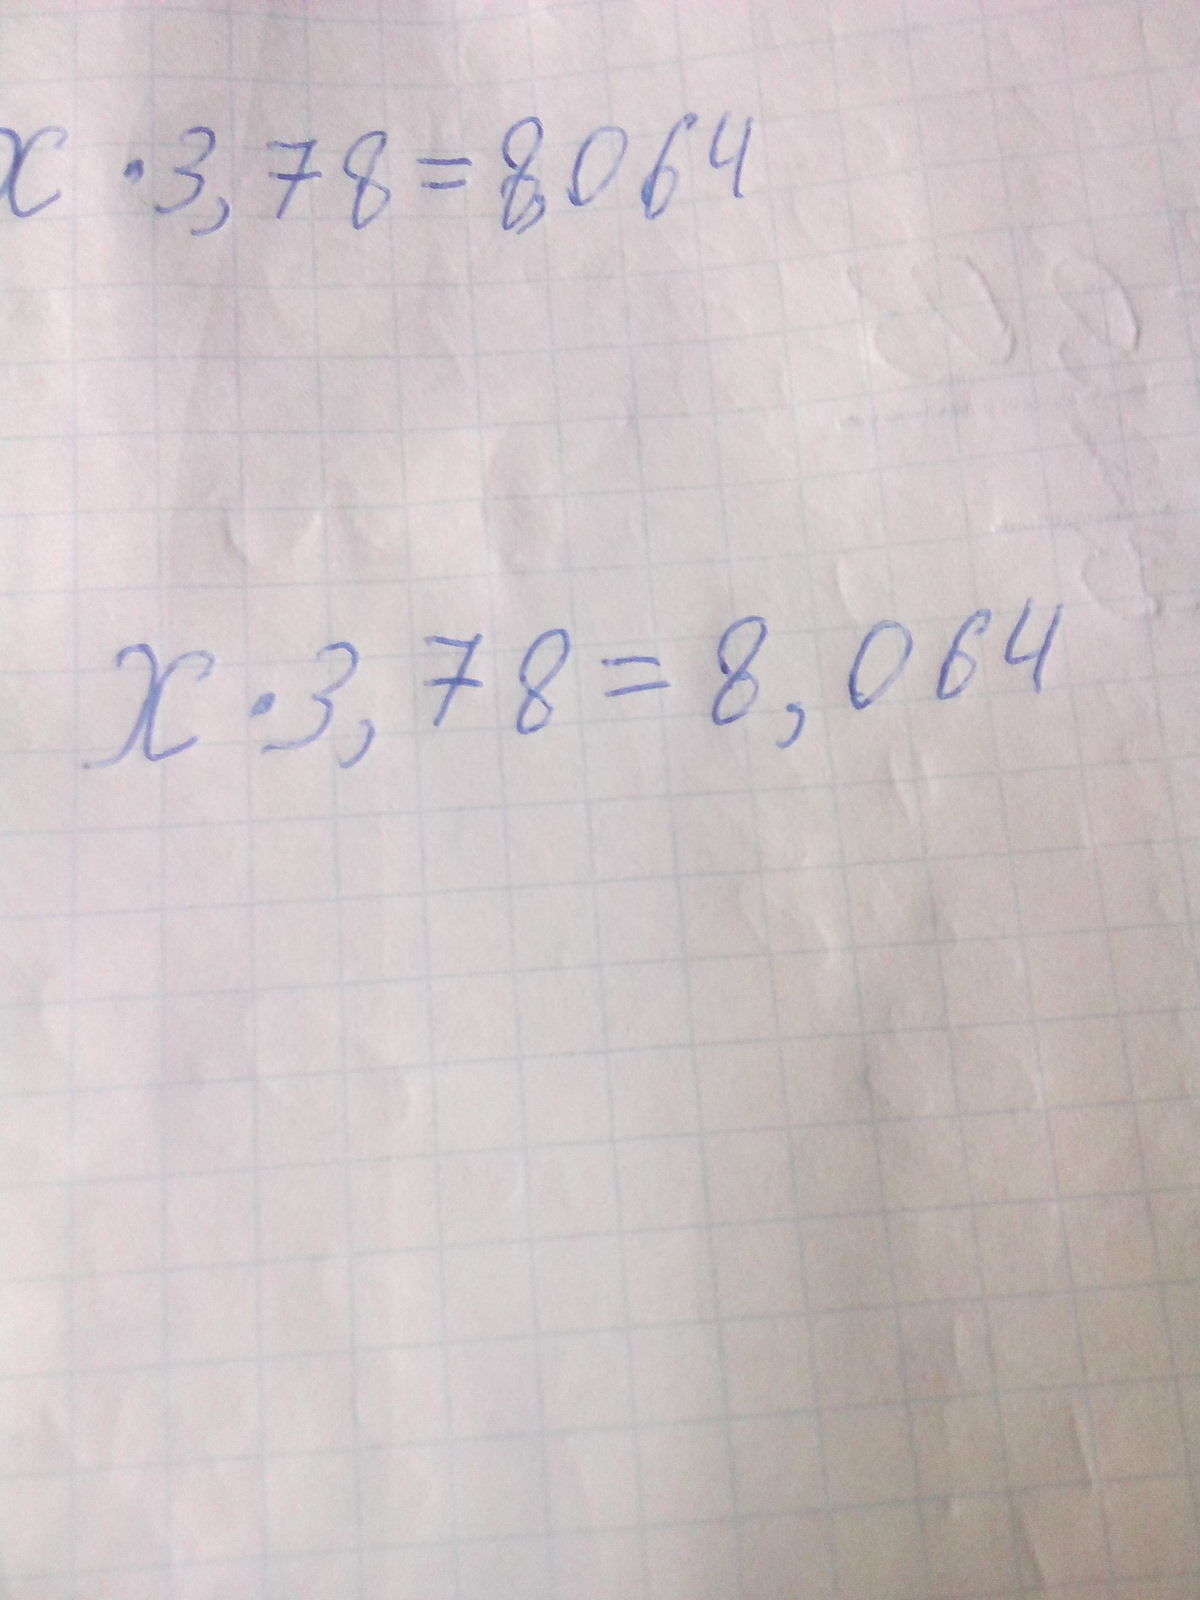 x · 3,78 = 8,064
x · 3,78 = 8,064